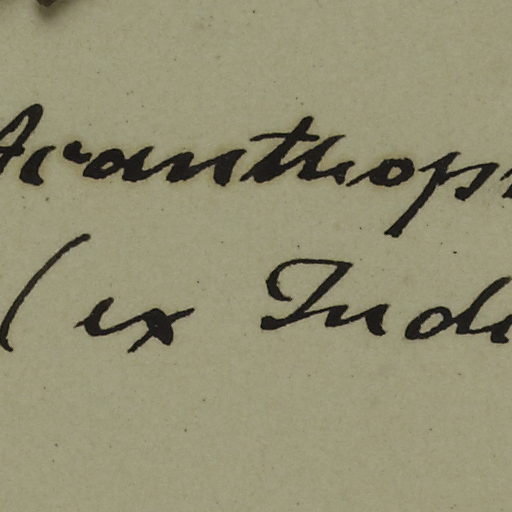 Acanthop
(ex Ind